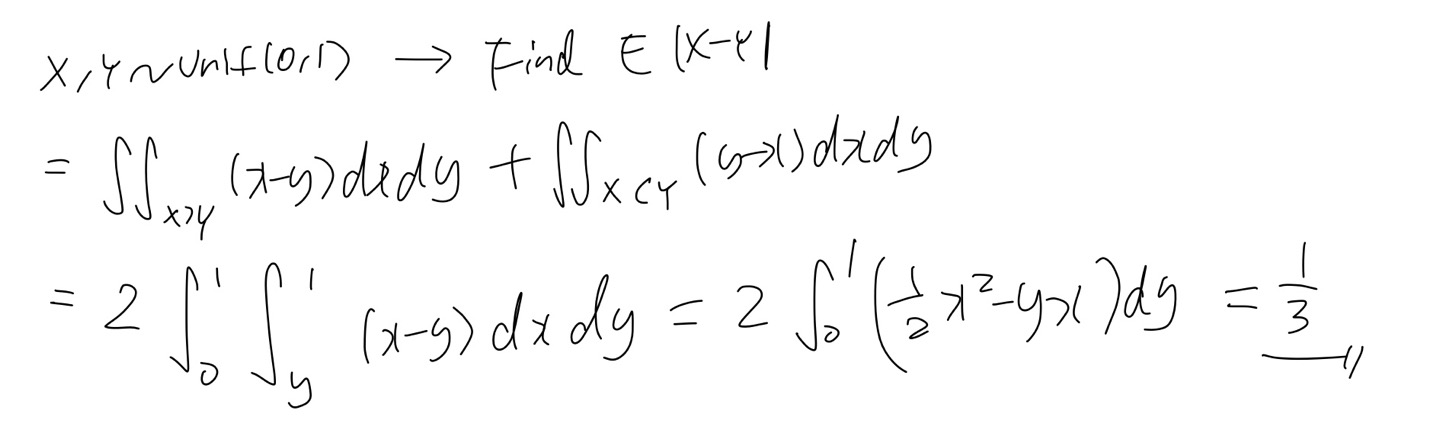 X,Y~Unif(0,1) → Find E|X-Y|
= ∬_{X>Y} (x-y)dxdy + ∬_{X<Y} (y-x)dxdy
= 2 ∫_0^1 ∫_y^1 (x-y)dxdy = 2 ∫_0^1 (1/2 x²-yx)dy = 1/3